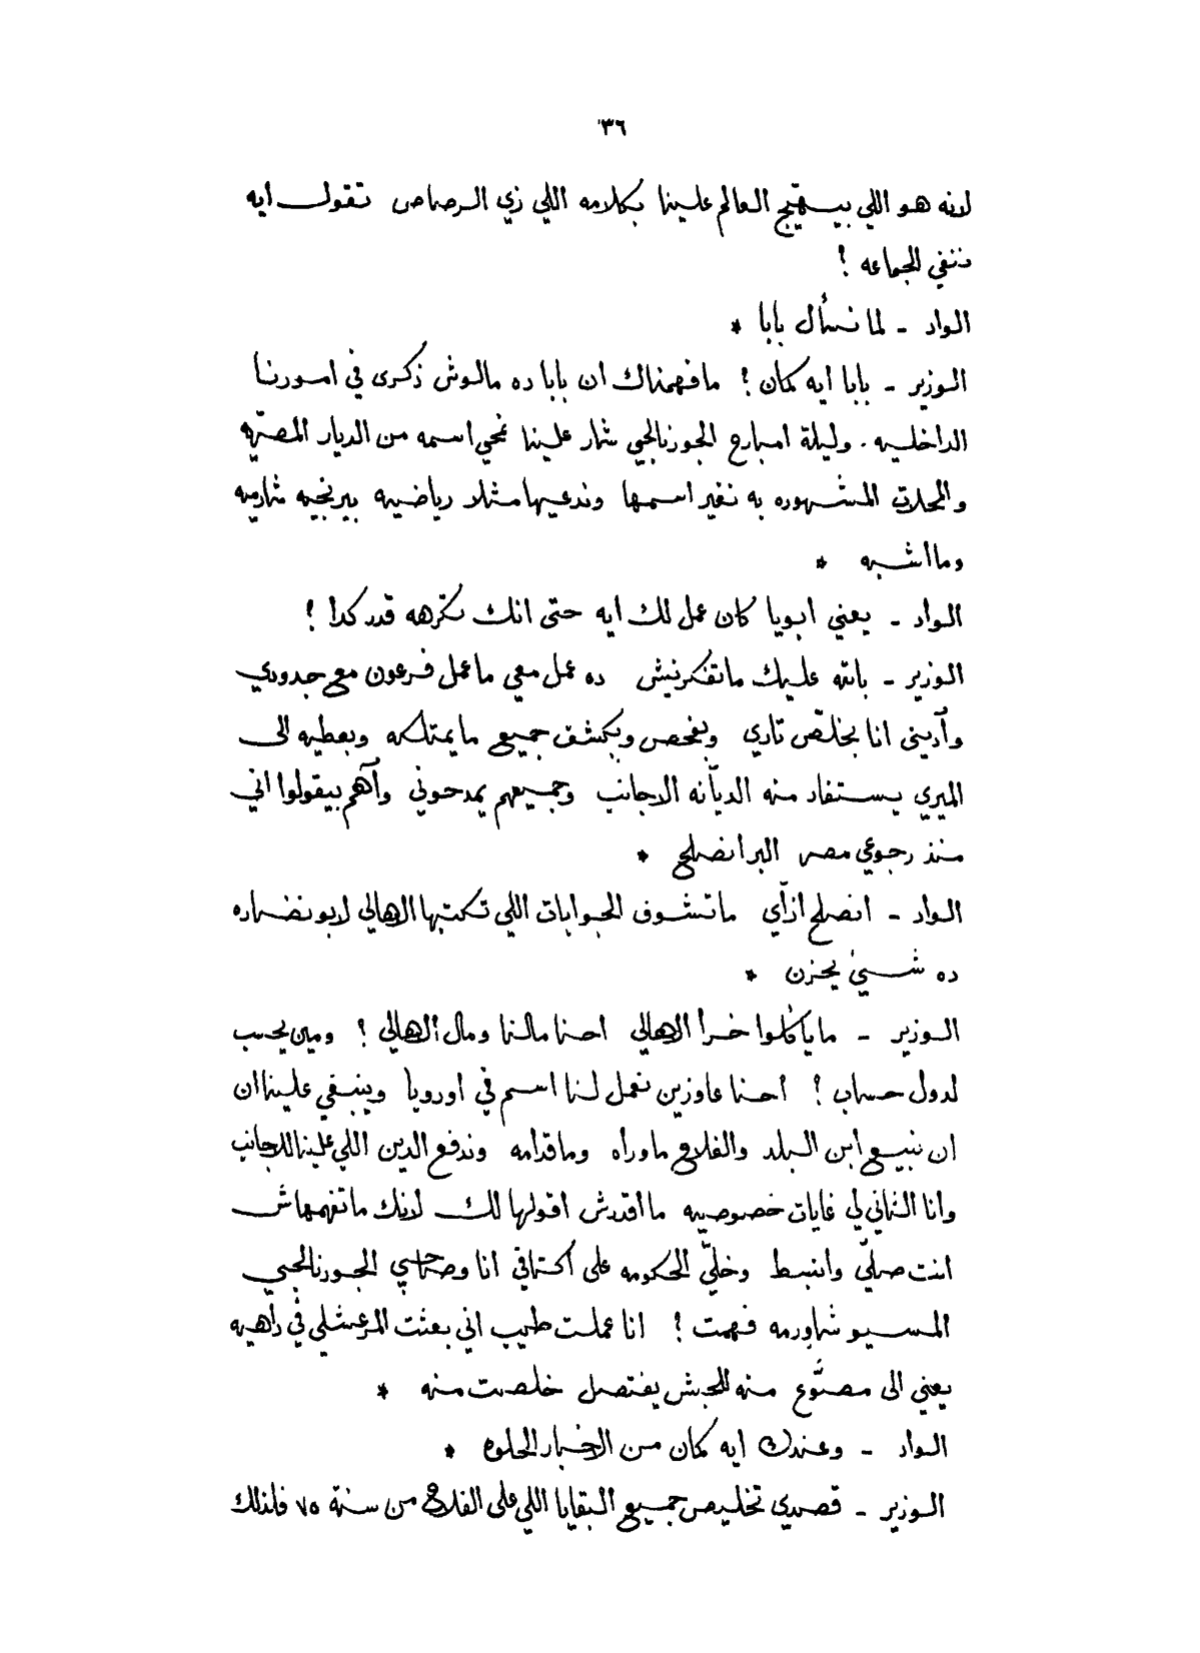 ٣٦
لانه هو اللي بيهيّج العالم علينا بكلامه اللي زي الرصاص تقول ايه
ننفي الجماعه !
الواد - لما نسأل بابا *
الوزير - بابا ايه كمان ! ما فهمناك ان بابا ده مالوش ذكرى في امورنا
الداخليه . وليلة امبارح الجورنالجي شار علينا نمحي اسمه من الديار المصريّه
والمحلات المشهوره به نغير اسمها وندعيها مثلا رياضيه بيرنجيه شارميه
وما اشبه *
الواد - يعني ابويا كان عمل لك ايه حتى انك تكرهه قدر كدا !
الوزير - بالله عليك ما تفكرنيش ده عمل معي ما عمل فرعون مع جدودي
وأديني انا بخلّص تاري وبفحص وبكشف جميع ما يمتلكه وبعطيه الى
الميري يستفاد منه الديّانه الاجانب وجميعهم يمدحوني وأهم بيقولوا اني
منذ رجوعي مصر البر انصلح *
الواد - انصلح ازّاي ما تشوف الجوابات اللي تكتبها الاهالي لابو نضاره
ده شيئ يحزن *
الوزير - ما ياكلوا خرا الاهالي احنا مالنا ومال الاهالي ! ومين يحسب
لدول حساب ! احنا عاوزين نعمل لنا اسم في اوروپا وينبغي علينا ان
ان نبيع ابن البلد والفلاح ما وراه وما قدامه وندفع الدين اللي علينا للاجانب
وانا الثاني لي غايات خصوصيه ما اقدرش اقولها لك لانك ما تفهمهاش
انت صلّي وانبسط وخلّي الحكومه على أكتافي انا وصاحبي الجورنالجي
المسيو شاورمه فهمت ! انا عملت طيب اني بعثت المرعشلي في داهيه
يعني الى مصوّع منه للحبش يفتصل خلصت منه *
الواد - وعندك ايه كمان من الاخبار الحلوه *
الوزير - قصدي تخليص جميع البقايا اللي على الفلاح من سنة ٧٥ فلذلك